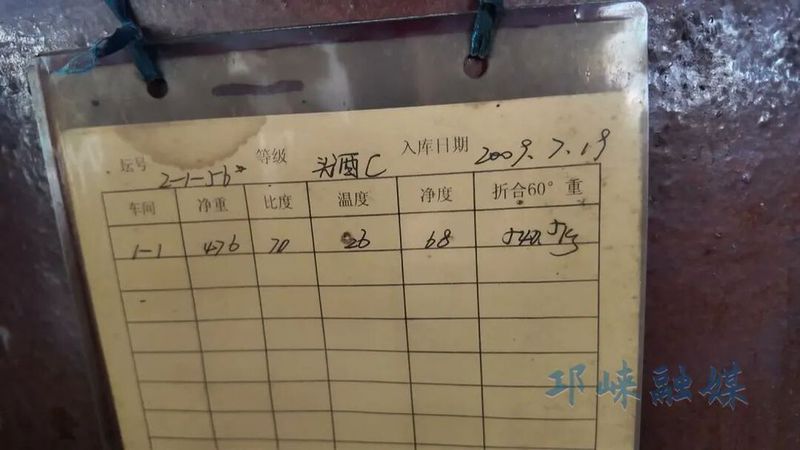 坛号 2-1-56# 等级 头酒C 入库日期 2009.7.19
车间 净重 比度 温度 净度 折合60°重
1-1 476 70 26 68
邛崃融媒